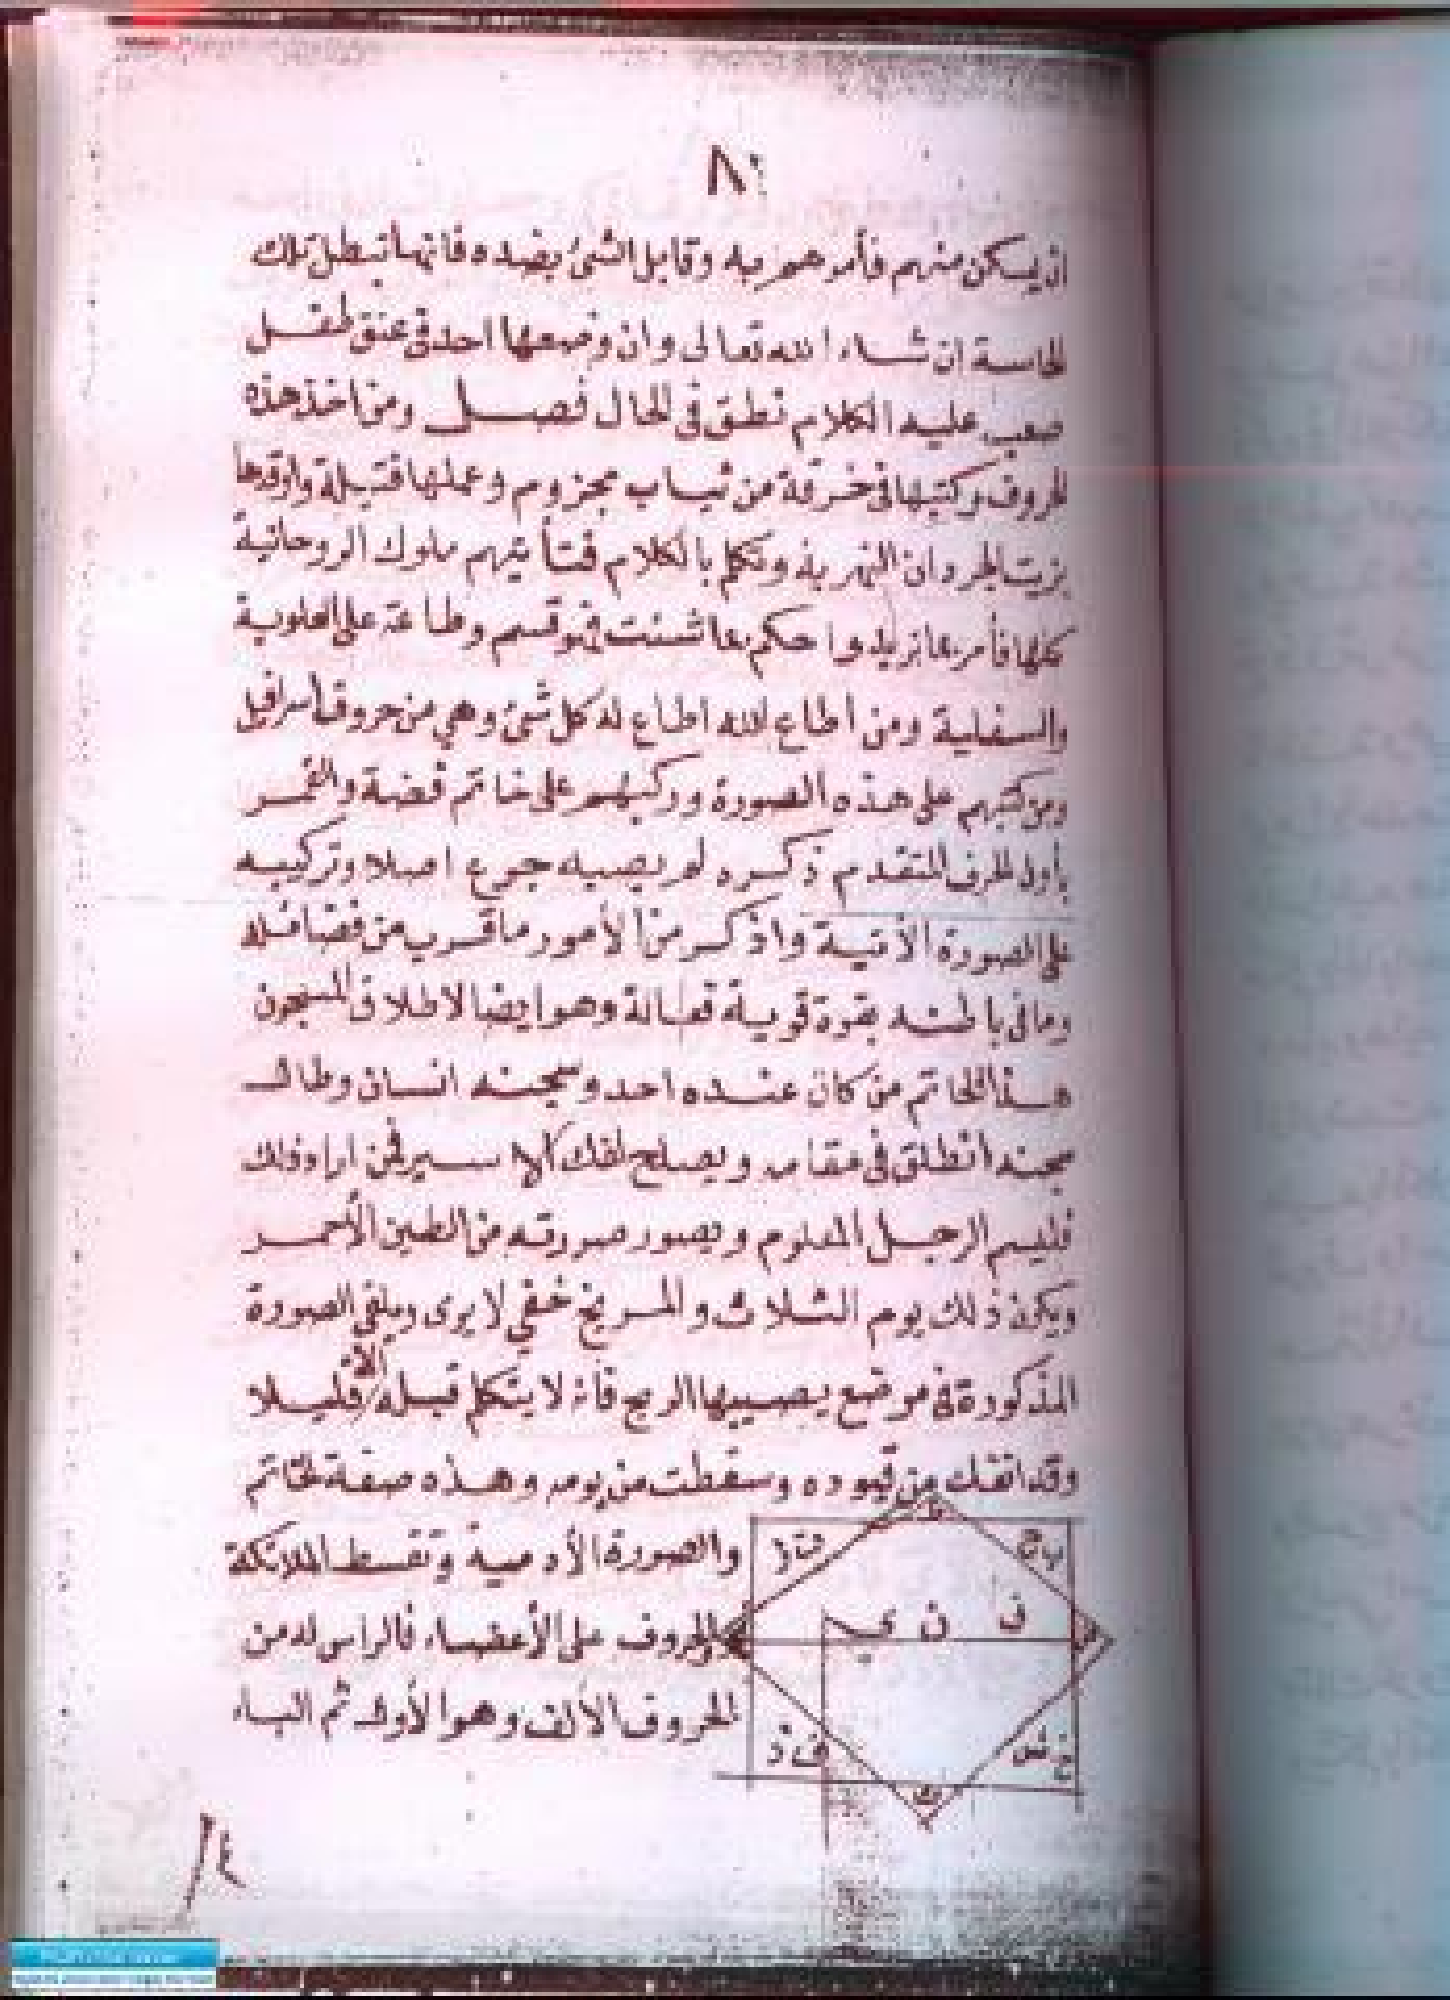 ٨٠
ان يسكن منهم فأمرهم به وقابل الشئ بضده فانها تبطل تلك
الحاسة ان شاء الله تعالى وان وضعها احد في عنق طفل
صعب عليه الكلام نطق في الحال فصل ومن اخذ هذه
الحروف وكتبها في خرقة من ثياب مجزوم وعملها فتيلة واوقدها
بزيت وتكلم بالكلام فتأتيهم ملوك الروحانية
كلها فأمر بما تريد واحكم بما شئت فهو قسم وطاعة على العلوية
والسفلية ومن أطاع الله اطاع له كل شئ وهي من حروف اسرافيل
ومن كتبهم على هذه الصورة وركبهم على خاتم فضة والقمر
بأول الحرف المتقدم ذكره لم يصبه جوع اصلا وتركيبه
على الصورة الأتية واذكر من الأمور ما قرب من فضائله
وما في باطنه بقوة قوية فعالة وهو ايضا لاطلاق المسجون
هذا الخاتم من كان عنده احد وسجنه انسان وطال
سجنه أنطلق في مقامه ويصلح لفك الاسير فمن اراد ذلك
فليسم الرجل الملزوم ويصور صورته من الطين الأحمر
ويكون ذلك يوم الثلاث والمريخ خفي لا يرى ويلقي الصورة
المذكورة في موضع يصيبها الريح فأنه لا يتكلم قبله الا قليلا
وقد اتفك من قيوده وسقطت من يومه وهذه صفة الخاتم
والصورة الأدمية وتقسط الملائكة
والحروف على الأعضاء فالراس له من
الحروف الألف وهو الأول ثم الباء
ف ن ي
ف ذ